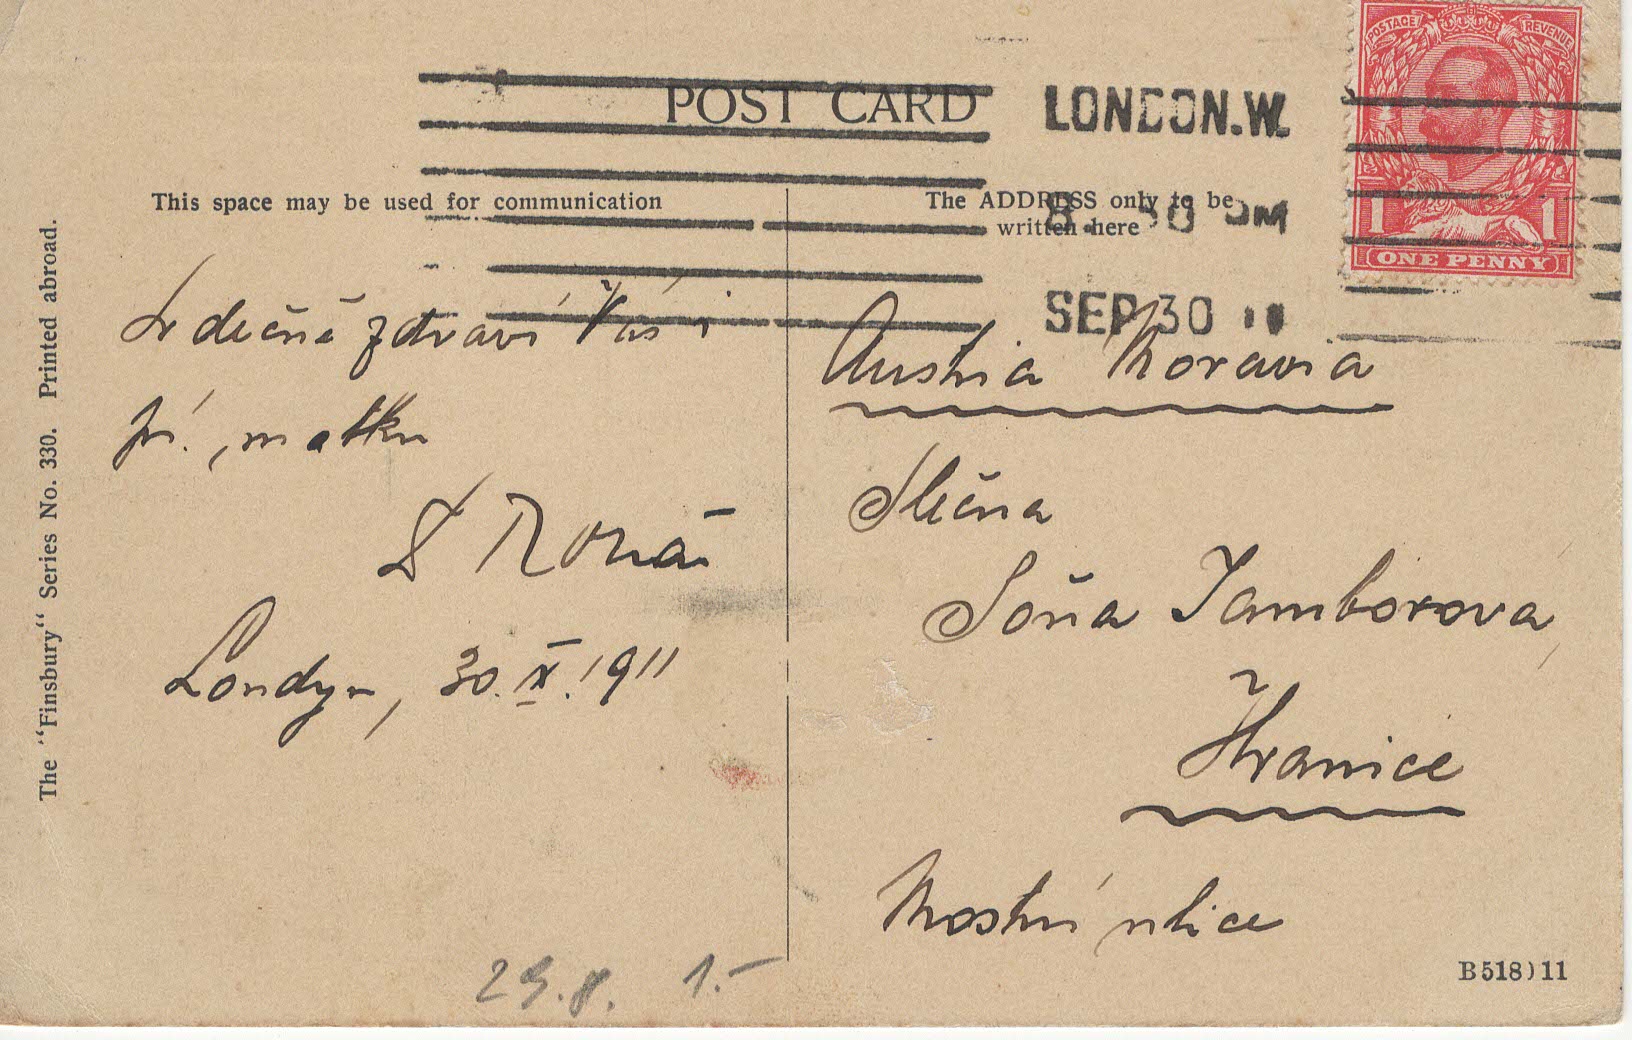 POST CARD
LONDON.W.
8. 30 PM
SEP 30 11
POSTAGE REVENUE
1 1
ONE PENNY
This space may be used for communication
The ADDRESS only to be
written here
The "Finsbury" Series No. 330. Printed abroad.
Srdečně zdraví Vás i
matku
Londýn, 30. IX. 1911
Austria Moravia
Slečna
Soňa Jamborova,
Hranice
Mostní ulice
29.8. 1.-
B518)11